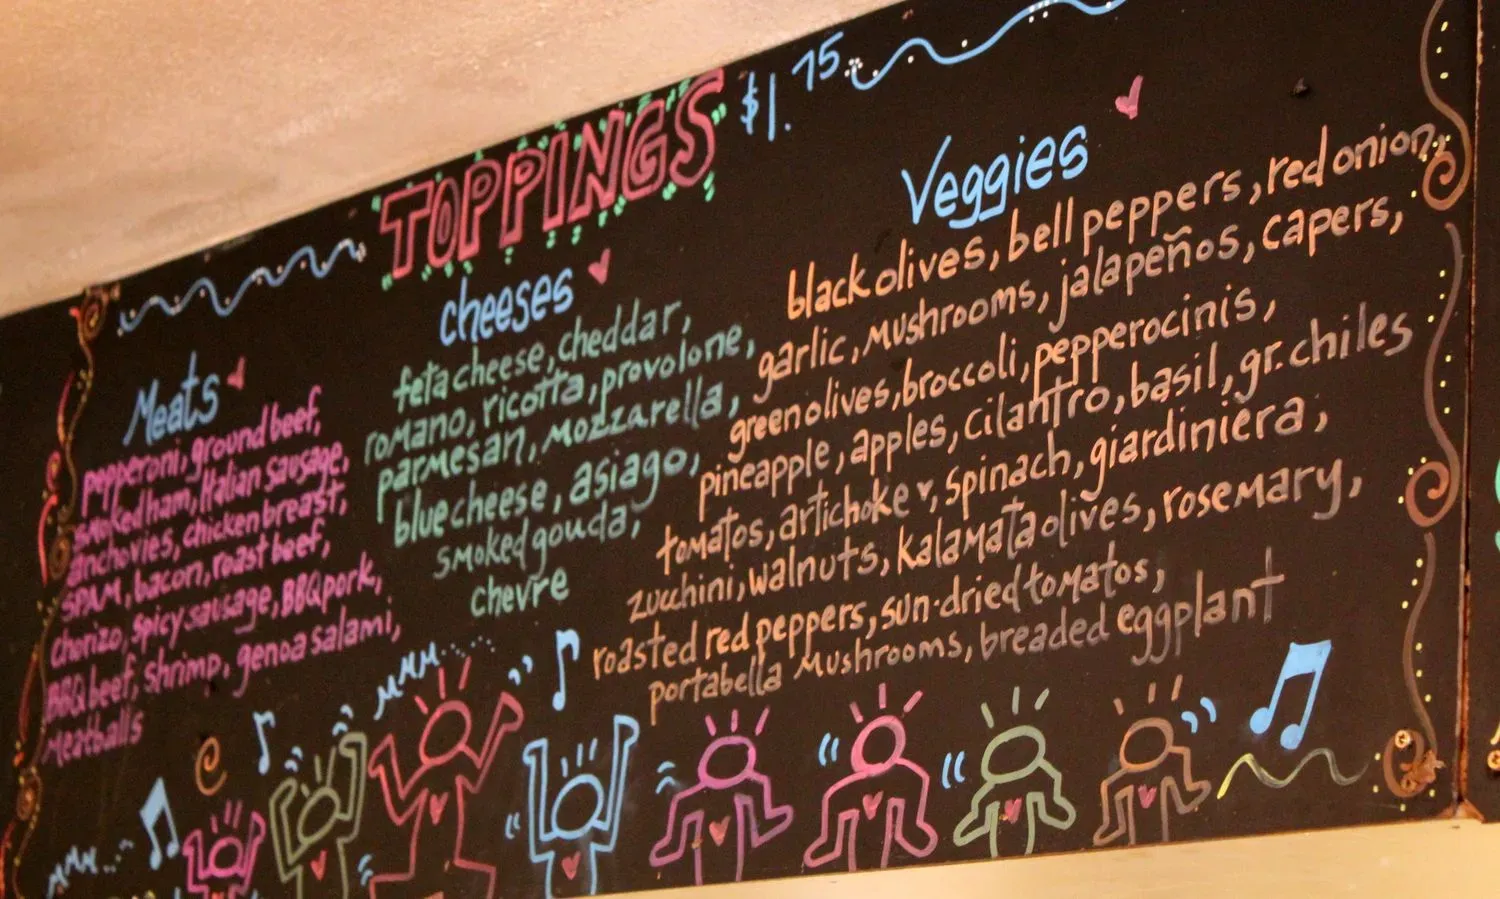 TOPPINGS $1.75
Meats
pepperoni, ground beef,
smoked ham, Italian sausage,
anchovies, chicken breast,
SPAM, bacon, roast beef,
chorizo, spicy sausage, BBQ pork,
BBQ beef, shrimp, genoa salami,
meatballs
cheeses
feta cheese, cheddar,
romano, ricotta, provolone,
parmesan, mozzarella,
blue cheese, asiago,
smoked gouda,
chevre
Veggies
black olives, bell peppers, red onion,
garlic, mushrooms, jalapeños, capers,
green olives, broccoli, pepperocinis,
pineapple, apples, cilantro, basil, gr. chiles
tomatos, artichoke ♥, spinach, giardiniera,
zucchini, walnuts, kalamata olives, rosemary,
roasted red peppers, sun-dried tomatos,
portabella mushrooms, breaded eggplant